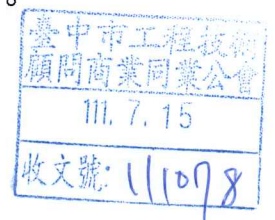 臺中市工程技術
顧問商業同業公會
111. 7. 15
收文號: 111078